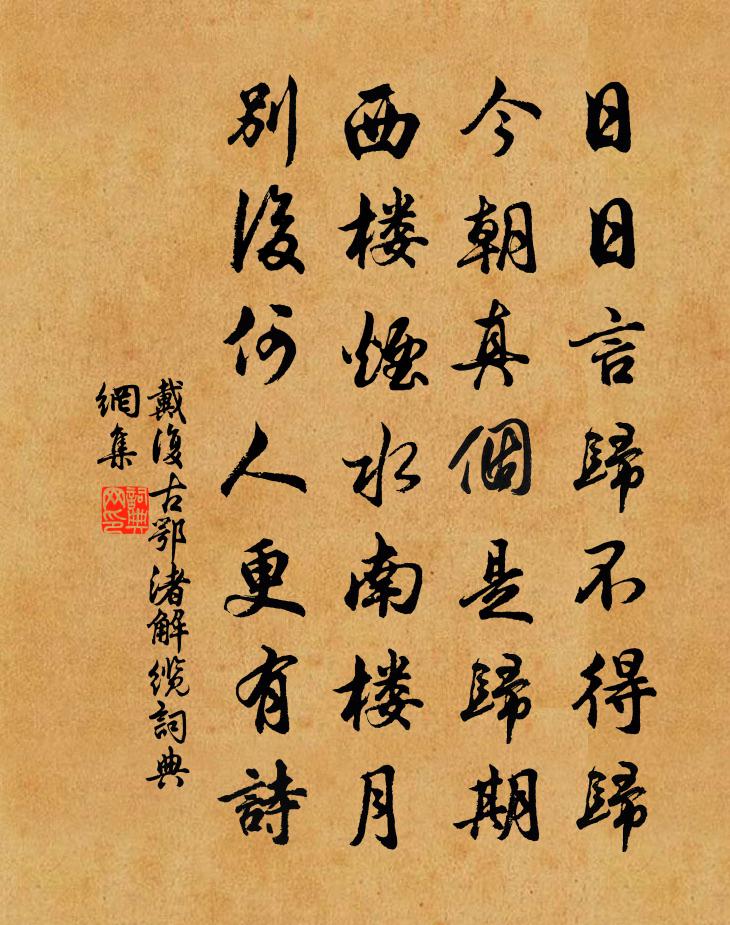 日日言歸不得歸
今朝真個是歸期
西楼煙水南楼月
別後何人更有詩
戴復古鄂渚解缆詞典
網集
詞典
网印